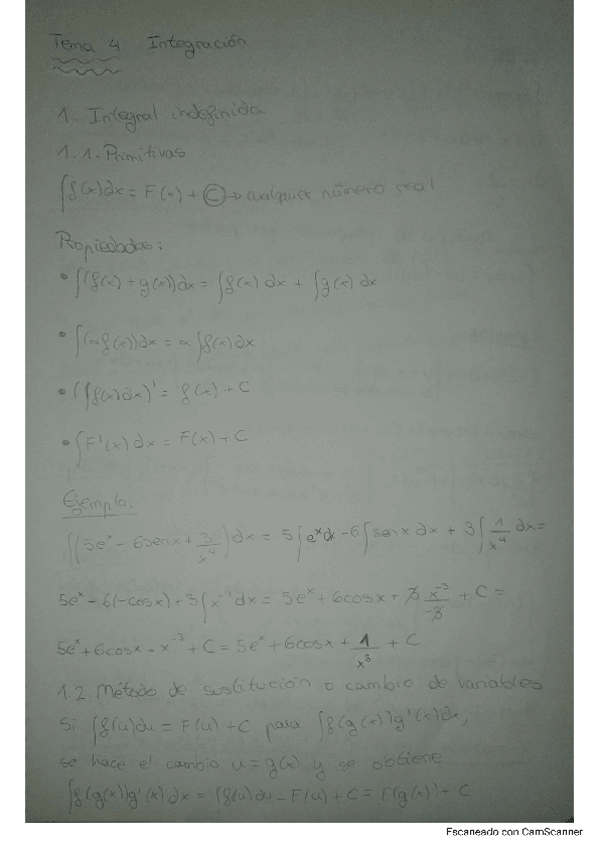 Tema 4 Integración
1. Integral indefinida
1.1. Primitivas
∫f(x)dx = F(x) + C → cualquier número real
Propiedades:
• ∫(f(x) + g(x))dx = ∫f(x) dx + ∫g(x) dx
• ∫(αf(x))dx = α∫f(x)dx
• (∫f(x)dx)' = f(x) + C
• ∫F'(x) dx = F(x) + C
Ejemplo:
∫(5eˣ - 6senx + 3/x⁴)dx = 5∫eˣdx - 6∫senx dx + 3∫1/x⁴ dx =
5eˣ - 6(-cosx) + 3∫x⁻⁴dx = 5eˣ + 6cosx + 3 x⁻³/-3 + C =
5eˣ + 6cosx - x⁻³ + C = 5eˣ + 6cosx + 1/x³ + C
1.2 Método de sustitución o cambio de variables
Si ∫f(u)du = F(u) + C para ∫f(g(x))g'(x)dx,
se hace el cambio u = g(x) y se obtiene
∫f(g(x))g'(x)dx = ∫f(u)du = F(u) + C = F(g(x)) + C
Escaneado con CamScanner